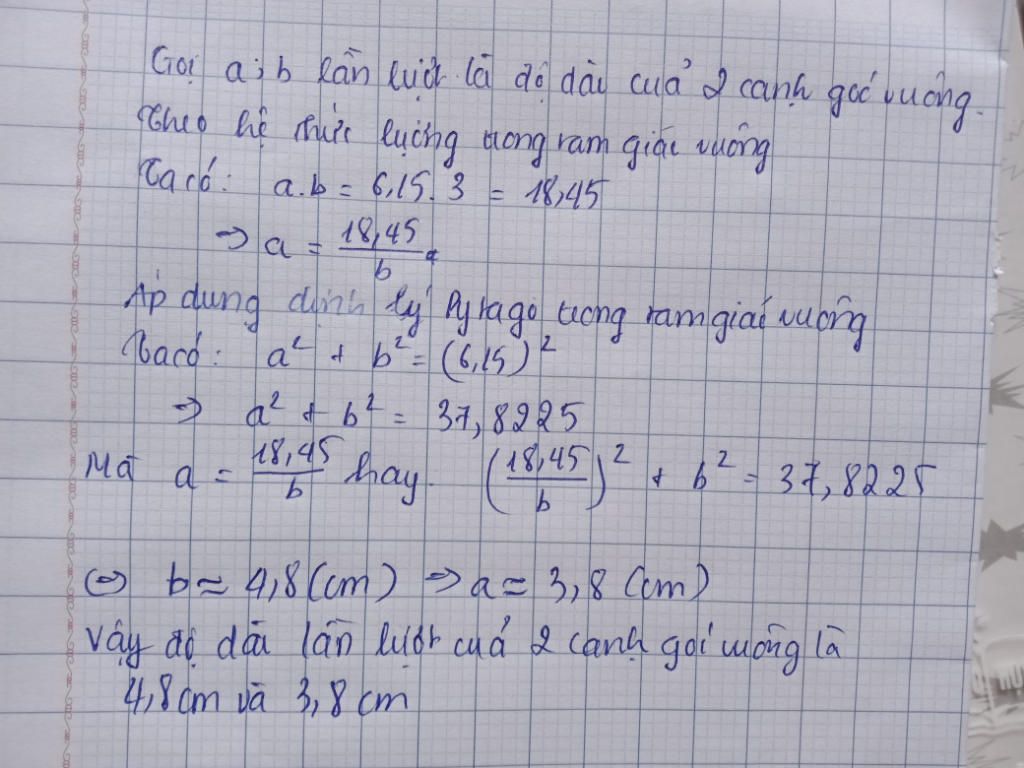 Gọi a; b lần lượt là độ dài của 2 cạnh góc vuông.
Theo hệ thức lượng trong tam giác vuông
Ta có: a.b = 6,15.3 = 18,45
⇒ a = 18,45/b
Áp dụng định lý Pytago trong tam giác vuông
Ta có: a² + b² = (6,15)²
⇒ a² + b² = 37,8225
Mà a = 18,45/b hay (18,45/b)² + b² = 37,8225
⇔ b ≈ 4,8 (cm) ⇒ a ≈ 3,8 (cm)
Vậy độ dài lần lượt của 2 cạnh góc vuông là
4,8 cm và 3,8 cm